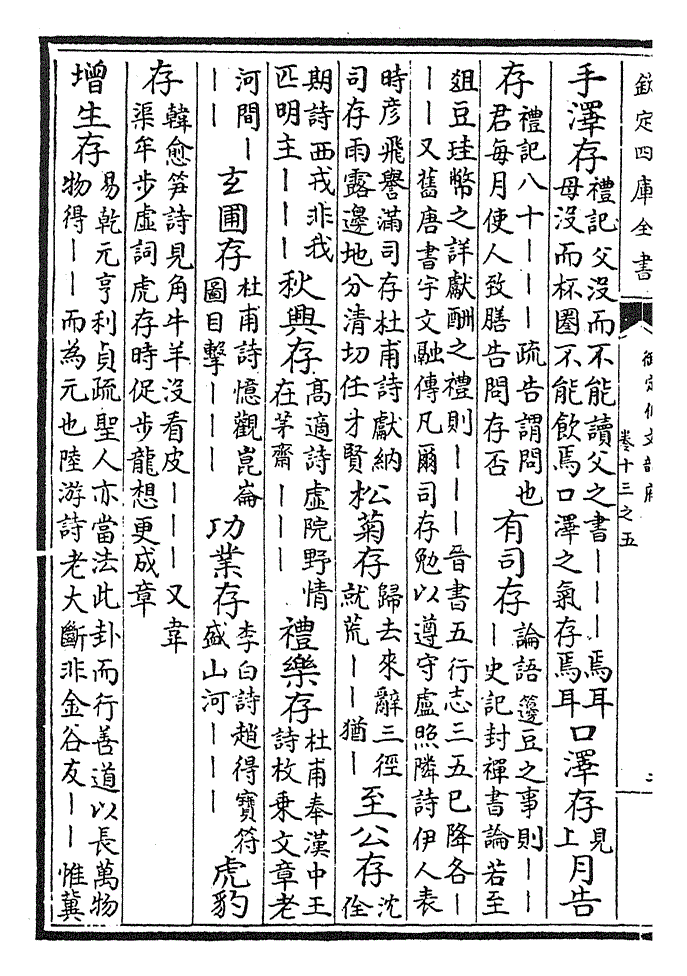 欽定四庫全書
御定佩文韻府
卷十三之五
二
手澤存
禮記父沒而不能讀父之書———焉耳
母沒而杯圈不能飲焉口澤之氣存焉耳
口澤存
見
上
月告
存
禮記八十———疏告謂問也
君每月使人致膳告問存否
有司存
論語籩豆之事則——
—史記封禪書論若至
俎豆珪幣之詳獻酬之禮則———晉書五行志三五已降各—
——又舊唐書宇文融傳凡爾司存勉以遵守盧照隣詩伊人表
時彦飛譽滿司存杜甫詩獻納
司存雨露邊地分清切任才賢
松菊存
歸去來辭三徑
就荒——猶—
至公存
沈
佺
期詩西戎非我
匹明主———
秋興存
髙適詩虛院野情
在茅齋———
禮樂存
杜甫奉漢中王
詩枚乘文章老
河間—
——
玄圃存
杜甫詩憶觀崑崙
圖目擊———
功業存
李白詩趙得寶符
盛山河———
虎豹
存
韓愈笋詩見角牛羊沒看皮———又韋
渠牟步虛詞虎存時促步龍想更成章
增生存
易乾元亨利貞疏聖人亦當法此卦而行善道以長萬物
物得——而為元也陸游詩老大斷非金谷友——惟冀